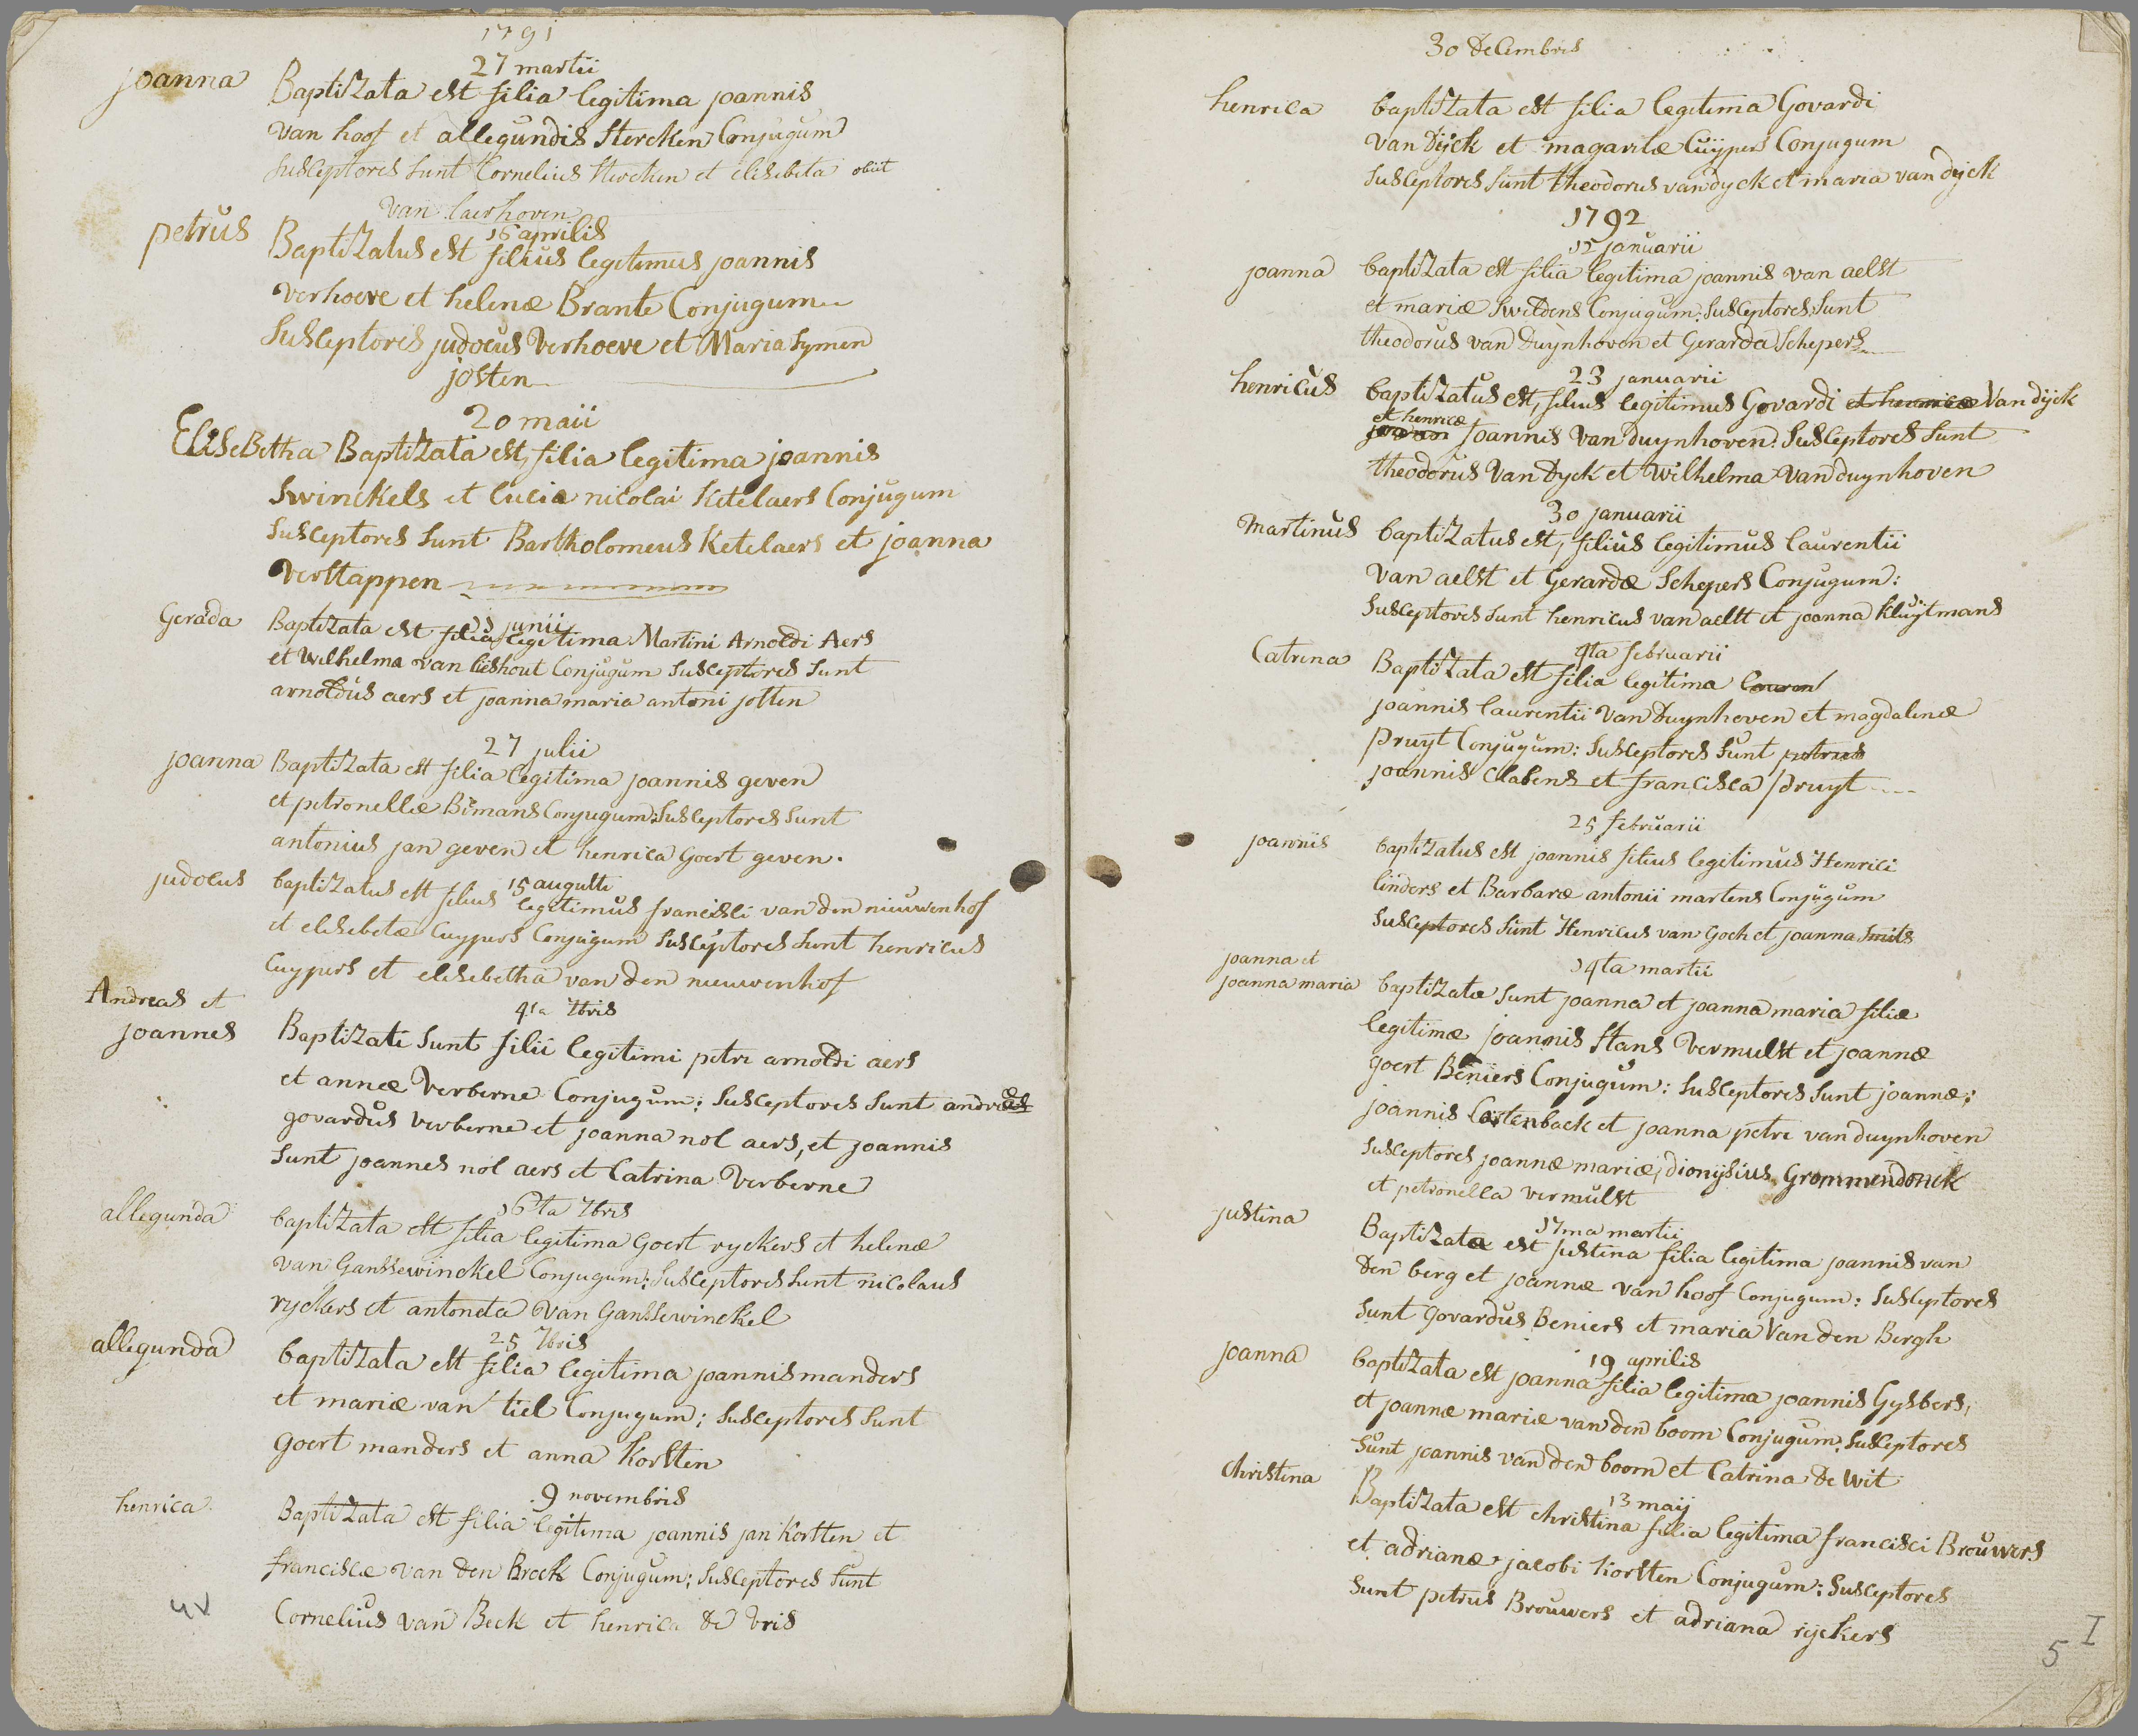 1791
27 martii
joanna Baptizata est filia legitima joannis
van hoof et allegundis Stercken Conjugum
susceptores sunt Cornelius Stercken et elisebeta obiit
van laerhoven
16 aprilis
petrus Baptizatus est filius legitimus joannis
verhoeve et helenæ Brante Conjugum
Susceptores judocus Verhoeve et Maria Symen
josten
20 maii
EliseBetha Baptizata est, filia legitima joannis
Swinckels et luciæ nicolai Ketelaers Conjugum
susceptores sunt Bartholomeus Ketelaers et joanna
Verstappen
junii
Gerada Baptizata est filia legitima Martini Arnoldi Aers
et Wilhelma van lieshout Conjugum susceptores sunt
arnoldus aers et joanna maria antoni josten
27 julii
joanna Baptizata est filia legitima joannis geven
et petronellæ Bimans Conjugum: susceptores sunt
antonius jan geven et henrica Goert geven.
15 augusti
judocus baptizatus est filius legitimus francisci van den nieuwenhof
et elisebetæ Cuypers Conjugum susceptores sunt henricus
Cuypers et elisebetha van den nieuwenhof
4ta 7bris
Andreas et
joannes Baptizati sunt filii legitimi petri arnoldi aers
et annæ Verberne Conjugum: susceptores sunt andreæ
govardus verberne et joanna nol aers, et joannis
sunt joannes nol aers et Catrina Verberne
16ta 7bris
allegunda baptizata est filia legitima Goert ryckers et helenæ
van Gansewinckel Conjugum: susceptores sunt nicolaus
ryckers et antoneta van Gansewinckel
25 7bris
allegunda baptizata est filia legitima joannis manders
et mariæ van tiel Conjugum; susceptores sunt
Goert manders et anna Korsten
9 novembris
henrica Baptizata est filia legitima joannis jan Korsten et
franciscæ van den Broek Conjugum: susceptores sunt
Cornelius van Beek et henrica de vris
4v
30 decembris
henrica baptizata est filia legitima Govardi
van Dijck et magaritæ Cuÿpers Conjugum
susceptores sunt theodorus van dyck et maria van dijck
1792
15 januarii
joanna baptizata est filia legitima joannis van aelst
et mariæ Swildens Conjugum: susceptores sunt
theodorus van Duynhoven et Gerarda Schepers
23 januarii
henricus baptizatus est, filius legitimus Govardi et henricæ Van dijck
et henricæ
joannis van duynhoven. susceptores sunt
theodorus Van Dyck et Wilhelma van duynhoven
30 januarii
Martinus baptizatus est, filius legitimus laurentii
van aelst et Gerardæ Schepers Conjugum:
susceptores sunt henricus van aelst et joanna Kluijtmans
4ta februarii
Catrina Baptizata est filia legitima lauren
joannis laurentii van Duynhoven et magdalenæ
pruyt Conjugum: susceptores sunt petrus
joannis Clabens et francisca pruyt
25 februarii
joannis baptizatus est joannis filius legitimus Henrici
linders et Barbaræ antonii martens Conjugum
susceptores sunt Henricus van Goch et joanna Smits
14ta martii
joanna et
joanna maria baptizatæ sunt joanna et joanna maria filiæ
legitimæ joannis Stans Vermulst et joannæ
goert Beniers Conjugum: susceptores sunt joannæ:
joannis Castenback et joanna petri van duynhoven
susceptores joannæ mariæ, dionijsius Grommendonck
et petronella vermulst
17ma martii
justina Baptizata est justina filia legitima joannis van
den berg et joannæ van hoof Conjugum: susceptores
sunt Govardus Beniers et maria Van den Bergh
19 aprilis
joanna baptizata est joanna filia legitima joannis Gysbers,
et joannæ mariæ van den boom Conjugum: susceptores
sunt joannis van den boom et Catrina de Wit
13 maij
Christina Baptizata est christina filia legitima francisci Brouwers
et adrianæ jacobi Korsten Conjugum: susceptores
sunt petrus Brouwers et adriana rijckers
5 I